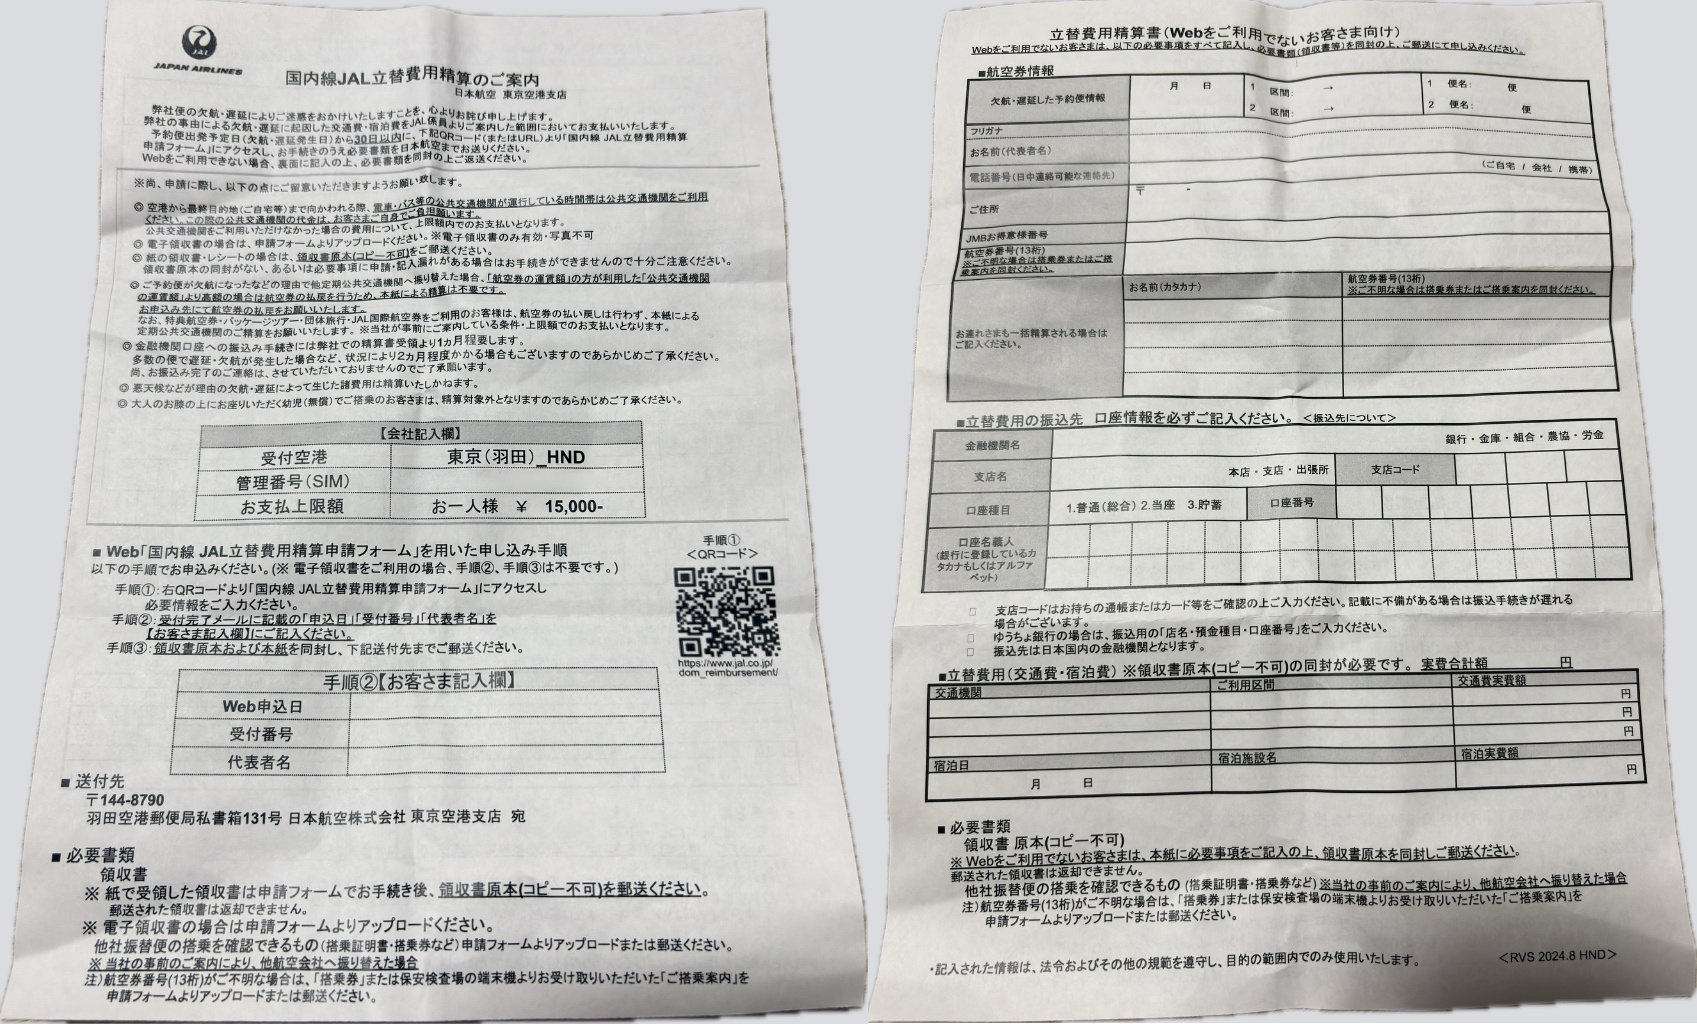 JAL
JAPAN AIRLINES
国内線JAL立替費用精算のご案内
日本航空 東京空港支店
弊社便の欠航・遅延によりご迷惑をおかけいたしますことを、心よりお詫び申し上げます。
弊社の事由による欠航・遅延に起因した交通費・宿泊費をJAL係員よりご案内した範囲においてお支払いいたします。
予約便出発予定日(欠航・遅延発生日)から30日以内に、下記QRコード(またはURL)より「国内線 JAL立替費用精算
申請フォーム」にアクセスし、お手続きのうえ必要書類を日本航空までお送りください。
Webをご利用できない場合、裏面に記入の上、必要書類を同封の上ご返送ください。
※尚、申請に際し、以下の点にご留意いただきますようお願い致します。
◎ 空港から最終目的地(ご自宅等)まで向かわれる際、電車・バス等の公共交通機関が運行している時間帯は公共交通機関をご利用
ください。この際の公共交通機関の代金は、お客さまご自身でご負担願います。
公共交通機関をご利用いただけなかった場合の費用について、上限額内でのお支払いとなります。
◎ 電子領収書の場合は、申請フォームよりアップロードください。※電子領収書のみ有効・写真不可
◎ 紙の領収書・レシートの場合は、領収書原本(コピー不可)をご郵送ください。
領収書原本の同封がない、あるいは必要事項に申請・記入漏れがある場合はお手続きができませんので十分ご注意ください。
◎ ご予約便が欠航になったなどの理由で他定期公共交通機関へ振り替えた場合、「航空券の運賃額」の方が利用した「公共交通機関
の運賃額」より高額の場合は航空券の払戻を行うため、本紙による精算は不要です。
お申込み先にて航空券の払戻をお願いいたします。
なお、特典航空券・パッケージツアー・団体旅行・JAL国際航空券をご利用のお客様は、航空券の払い戻しは行わず、本紙による
定期公共交通機関のご精算をお願いいたします。※当社が事前にご案内している条件・上限額でのお支払いとなります。
◎ 金融機関口座への振込み手続きには弊社での精算書受領より1カ月程要します。
多数の便で遅延・欠航が発生した場合など、状況により2カ月程度かかる場合もございますのであらかじめご了承ください。
尚、お振込み完了のご連絡は、させていただいておりませんのでご了承願います。
◎ 悪天候などが理由の欠航・遅延によって生じた諸費用は精算いたしかねます。
◎ 大人のお膝の上にお座りいただく幼児(無償)でご搭乗のお客さまは、精算対象外となりますのであらかじめご了承ください。
【会社記入欄】
受付空港 東京(羽田)_HND
管理番号(SIM)
お支払上限額 お一人様 ¥ 15,000-
■ Web「国内線 JAL立替費用精算申請フォーム」を用いた申し込み手順
以下の手順でお申込みください。(※ 電子領収書をご利用の場合、手順②、手順③は不要です。)
手順①
<QRコード>
手順①:右QRコードより「国内線 JAL立替費用精算申請フォーム」にアクセスし
必要情報をご入力ください。
手順②:受付完了メールに記載の「申込日」「受付番号」「代表者名」を
【お客さま記入欄】にご記入ください。
手順③:領収書原本および本紙を同封し、下記送付先までご郵送ください。
https://www.jal.co.jp/
dom_reimbursement/
手順②【お客さま記入欄】
Web申込日
受付番号
代表者名
■ 送付先
〒144-8790
羽田空港郵便局私書箱131号 日本航空株式会社 東京空港支店 宛
■ 必要書類
領収書
※ 紙で受領した領収書は申請フォームでお手続き後、領収書原本(コピー不可)を郵送ください。
郵送された領収書は返却できません。
※ 電子領収書の場合は申請フォームよりアップロードください。
他社振替便の搭乗を確認できるもの(搭乗証明書・搭乗券など)申請フォームよりアップロードまたは郵送ください。
※ 当社の事前のご案内により、他航空会社へ振り替えた場合
注)航空券番号(13桁)がご不明な場合は、「搭乗券」または保安検査場の端末機よりお受け取りいただいた「ご搭乗案内」を
申請フォームよりアップロードまたは郵送ください。
立替費用精算書(Webをご利用でないお客さま向け)
Webをご利用でないお客さまは、以下の必要事項をすべて記入し、必要書類(領収書等)を同封の上、ご郵送にて申し込みください。
■航空券情報
欠航・遅延した予約便情報 月 日 1 区間: → 1 便名: 便
2 区間: → 2 便名: 便
フリガナ
お名前(代表者名)
電話番号(日中連絡可能な連絡先) (ご自宅 / 会社 / 携帯)
ご住所 〒 -
JMBお得意様番号
航空券番号(13桁)
※ご不明な場合は搭乗券またはご搭
乗案内を同封ください。
お名前(カタカナ) 航空券番号(13桁)
※ご不明な場合は搭乗券またはご搭乗案内を同封ください。
お連れさまも一括精算される場合は
ご記入ください。
■立替費用の振込先 口座情報を必ずご記入ください。 <振込先について>
金融機関名 銀行・金庫・組合・農協・労金
支店名 本店・支店・出張所 支店コード
口座種目 1.普通(総合) 2.当座 3.貯蓄 口座番号
口座名義人
(銀行に登録しているカ
タカナもしくはアルファ
ベット)
□ 支店コードはお持ちの通帳またはカード等をご確認の上ご入力ください。記載に不備がある場合は振込手続きが遅れる
場合がございます。
□ ゆうちょ銀行の場合は、振込用の「店名・預金種目・口座番号」をご入力ください。
□ 振込先は日本国内の金融機関となります。
■立替費用(交通費・宿泊費) ※領収書原本(コピー不可)の同封が必要です。 実費合計額 円
交通機関 ご利用区間 交通費実費額
円
円
円
宿泊日 宿泊施設名 宿泊実費額
月 日 円
■ 必要書類
領収書 原本(コピー不可)
※ Webをご利用でないお客さまは、本紙に必要事項をご記入の上、領収書原本を同封しご郵送ください。
郵送された領収書は返却できません。
他社振替便の搭乗を確認できるもの (搭乗証明書・搭乗券など) ※当社の事前のご案内により、他航空会社へ振り替えた場合
注)航空券番号(13桁)がご不明な場合は、「搭乗券」または保安検査場の端末機よりお受け取りいただいた「ご搭乗案内」を
申請フォームよりアップロードまたは郵送ください。
・記入された情報は、法令およびその他の規範を遵守し、目的の範囲内でのみ使用いたします。
<RVS 2024.8 HND>